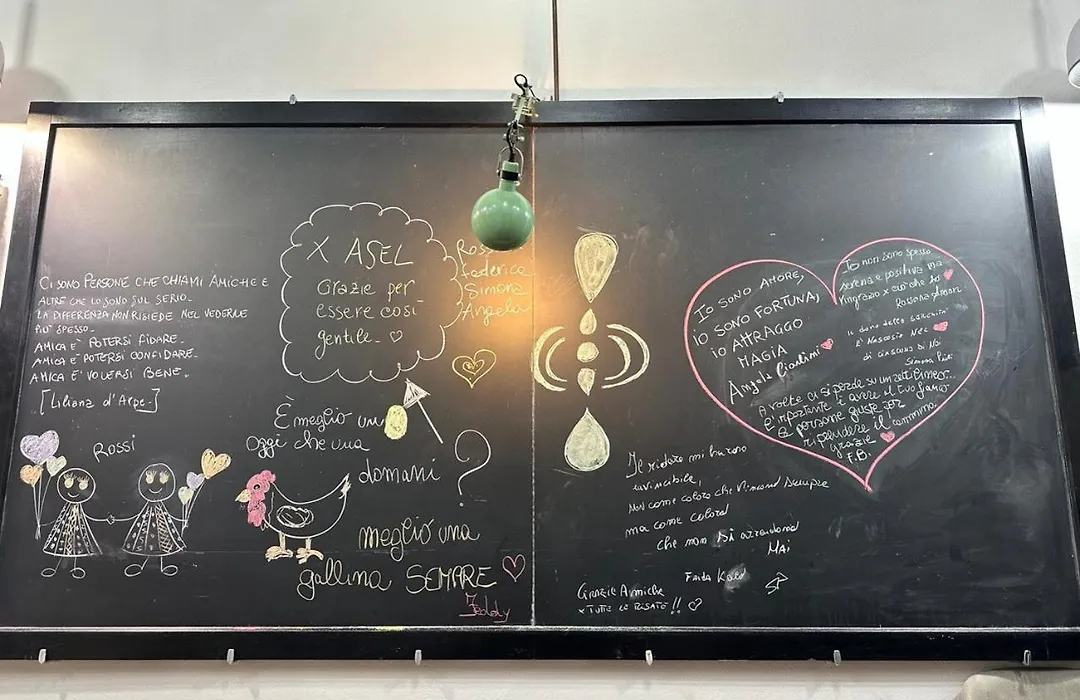 CI SONO PERSONE CHE CHIAMI AMICHE E
ALTRE CHE LO SONO SUL SERIO.
LA DIFFERENZA NON RISIEDE NEL VEDERLE
PIU' SPESSO.
AMICA E' POTERSI FIDARE.
AMICA E' POTERSI CONFIDARE.
AMICA E' VOLERSI BENE.
[Liliana d'Arpe]
Rossi
X ASEL
Grazie per
essere così
gentile.
Federica
Simona
Angela
È meglio un
oggi che una
domani ?
meglio una
gallina SEMPRE
Teddy
IO SONO AMORE,
IO SONO FORTUNA,
IO ATTRAGGO
MAGIA
Angela
Io non sono spesso
serena e positiva ma
ringrazio x ciò che ho
Rossana
IL dono della
E' NASCOSTO NEL
DI CIASCUNO DI NOI
Simona
A volte ci si perde su un sentiero...
E' importante è avere al tuo fianco
le persone giuste per
riprendere il cammino
grazie
F.B.
Le risate mi hanno
invincibile,
NON come coloro che vincono sempre
ma come coloro
che non si arrendono
MAI
Frida Kalo
GRAZIE Amiche
x TUTTE LE RISATE !!